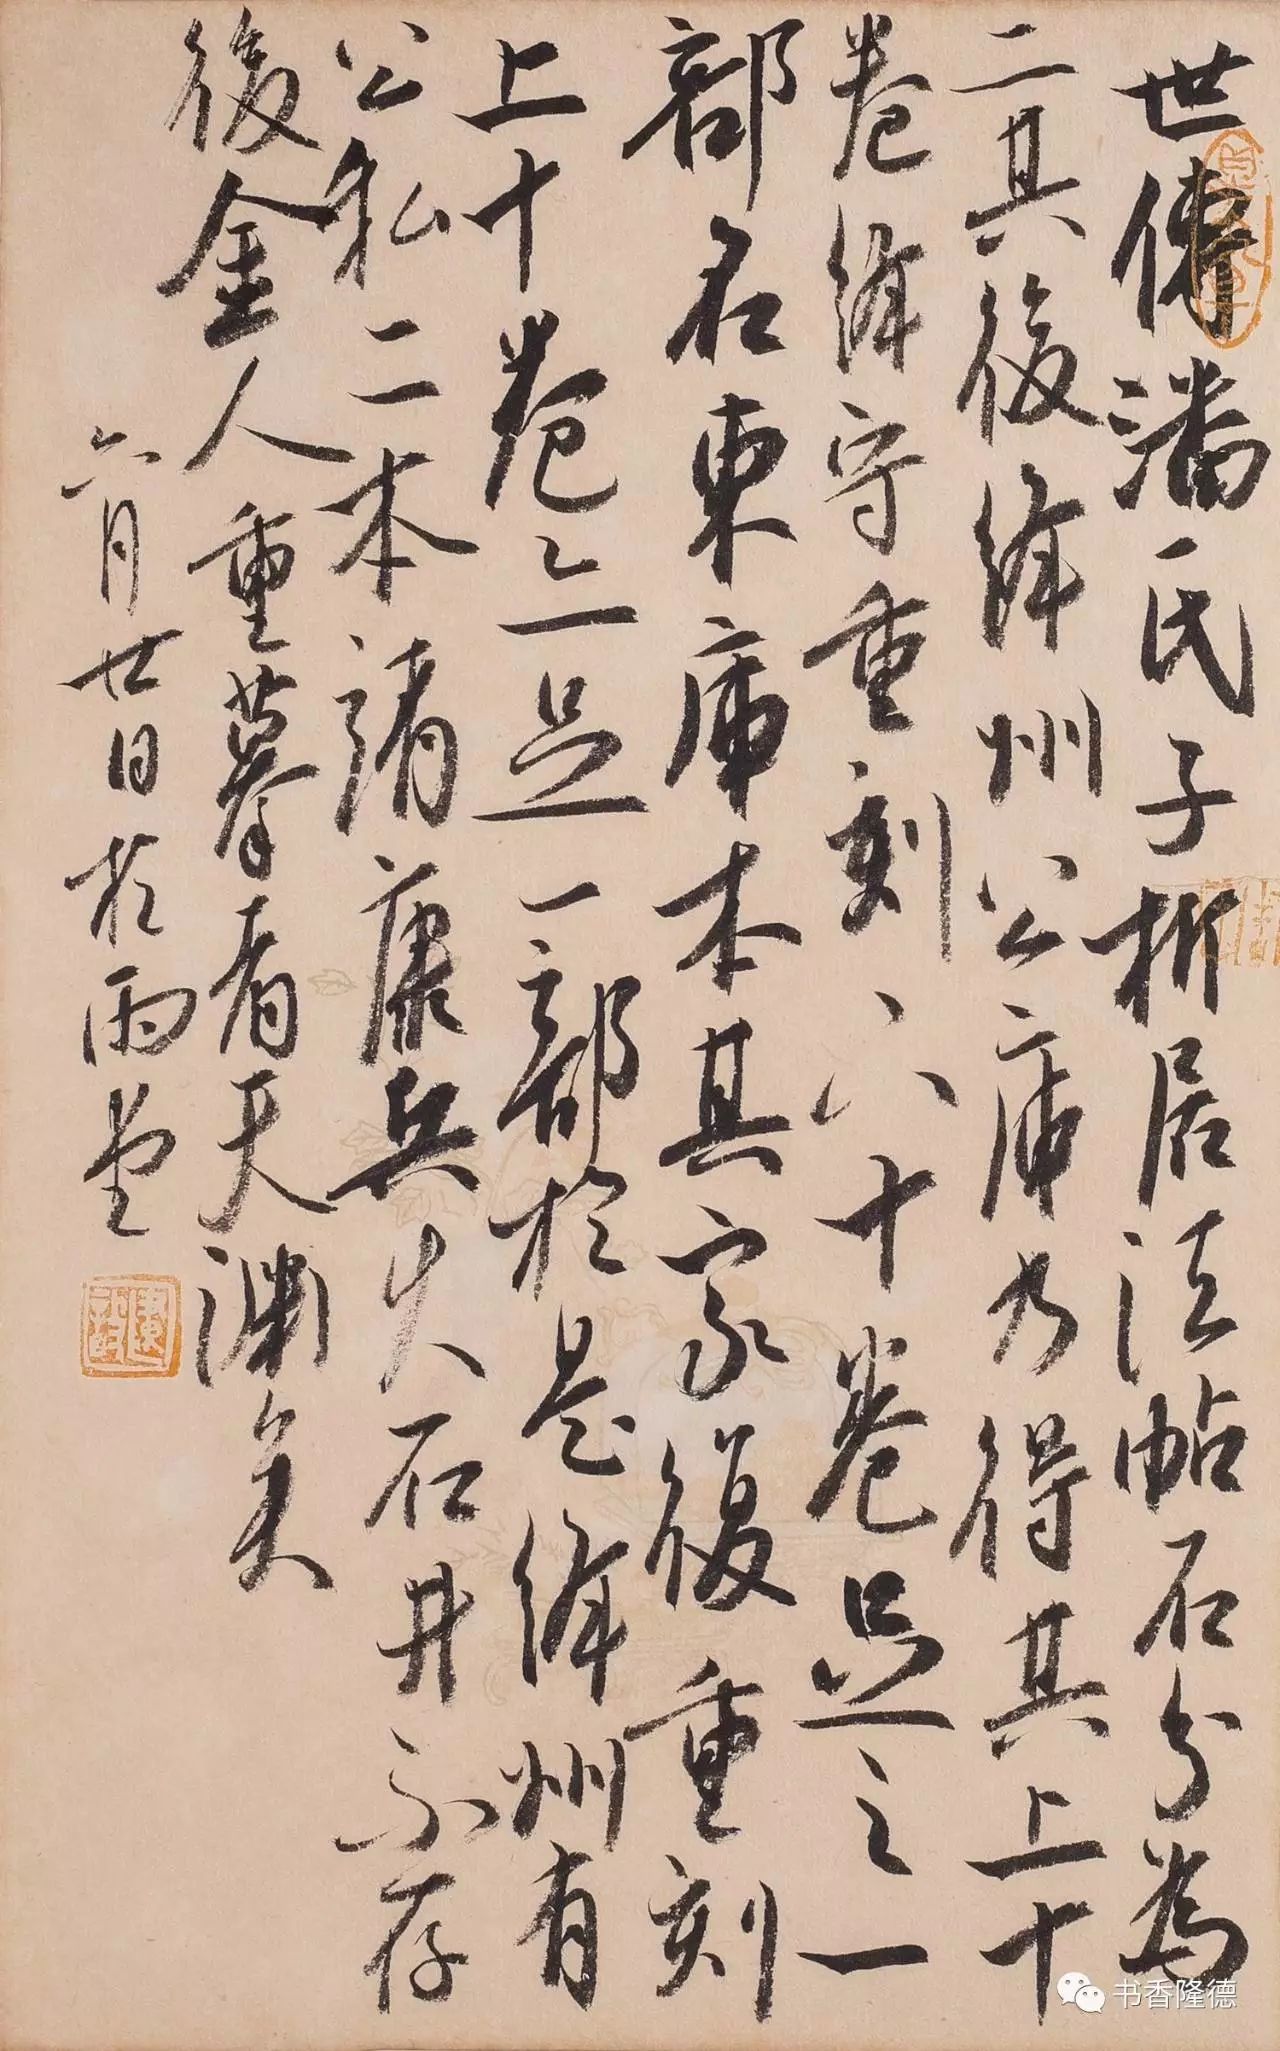 世傳潘氏子析居法帖石分為
二其後絳州公庫乃得其上十
卷絳守重刻下十卷足之一
部名東庫本其家復重刻
上十卷亦足一部於是絳州有
公私二本靖康兵火石并不存
後金人重摹者天淵矣
六月廿日於雨堂
书香隆德